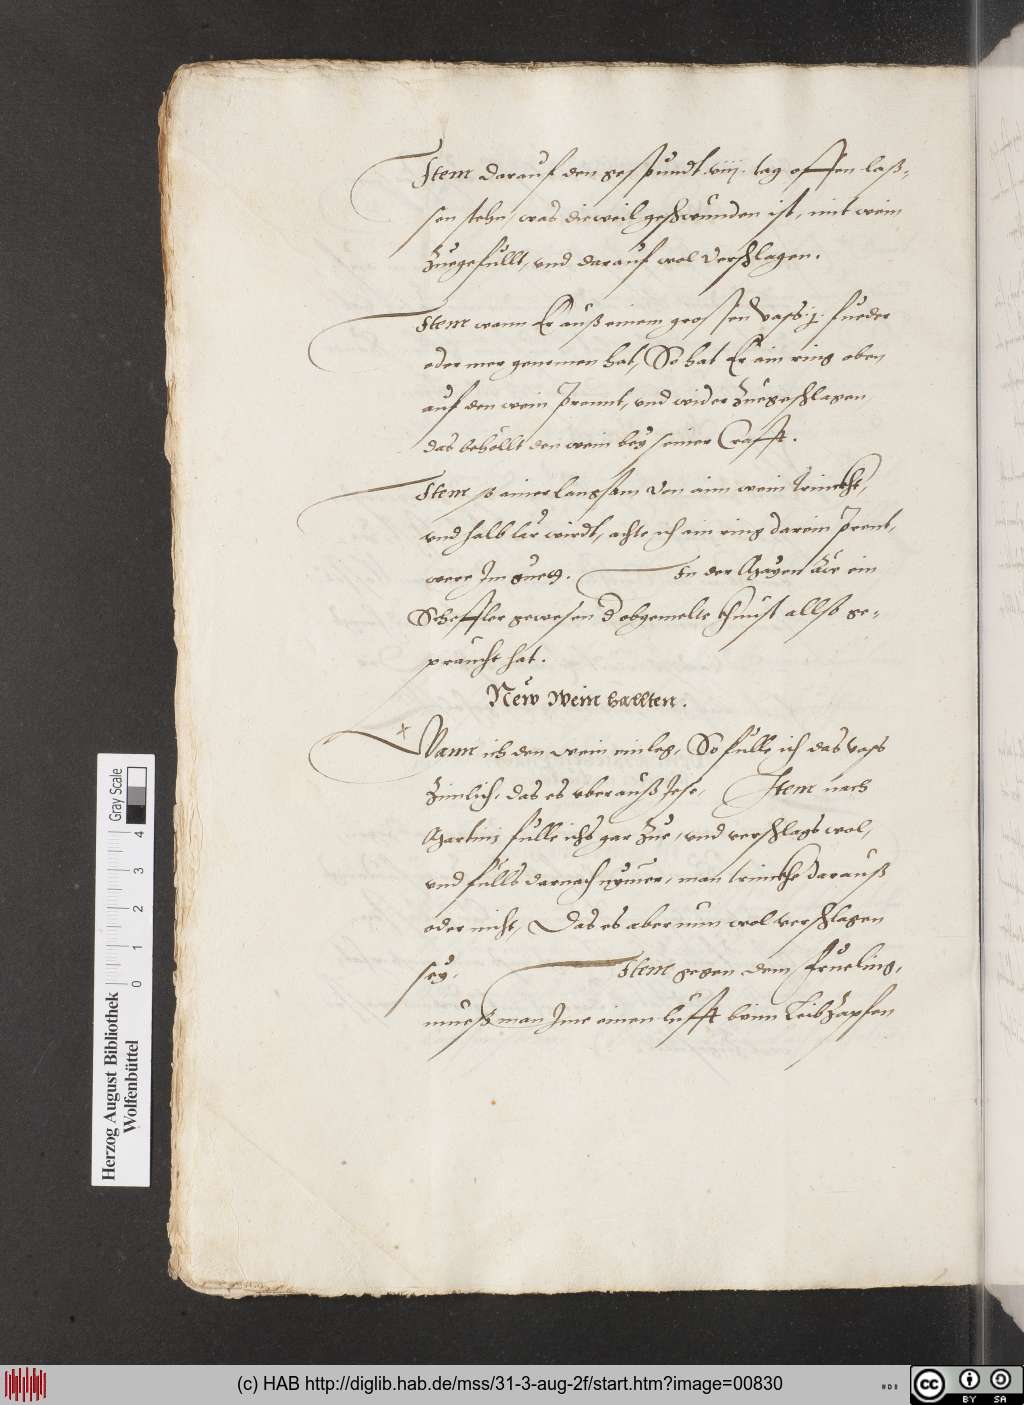 Item darauf den gespundt viij. tag offen laß-
sen stehn, was dieweil geschwunden ist, mit wein
zuegefullt, und darauf wol verschlagen.
Item wann Er auß einem grossen vass .j. fueder
oder mer genomen hat, So hat Er ain ring oben
auf den wein prennt, und wider zuegeschlagen
das behellt den wein bey seiner Crafft.
Item so ainer langsam von aim wein trinckht,
und halb lär wirdt, achte ich ein ring darein prent,
were Im guet. In der ein
Scheffler gewesen d obgemelte khunst allso ge-
praucht hat.
New wein hallten.
Wann ich den wein einleg, So fulle ich das vass
zimlich, das es uberauß Jese, Item nach
Martini fulle ichs gar zue, und verschlags wol,
und fulls darnach nymer, man trinckhe darauß
oder nicht, Das es aber nun wol verschlagen
sey. Item gegen dem Frueling,
mueß man Ime einen lufft beim Leibzapfen
Herzog August Bibliothek
Wolfenbüttel
0 1 2 3 4
Gray Scale
(c) HAB http://diglib.hab.de/mss/31-3-aug-2f/start.htm?image=00830
cc BY SA